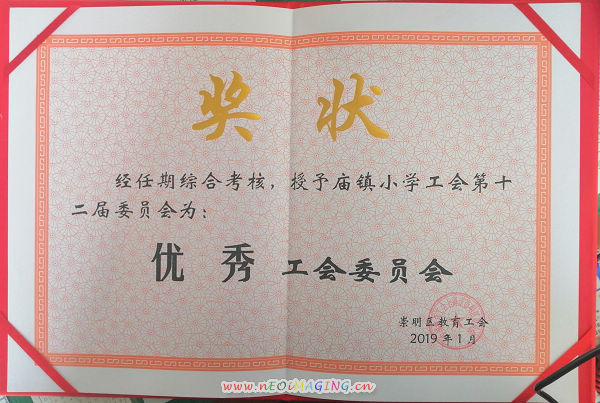 奖状
经任期综合考核，授予庙镇小学工会第十
二届委员会为：
优秀工会委员会
崇明区教育工会
2019年1月
www.nEOiMAGING.cn